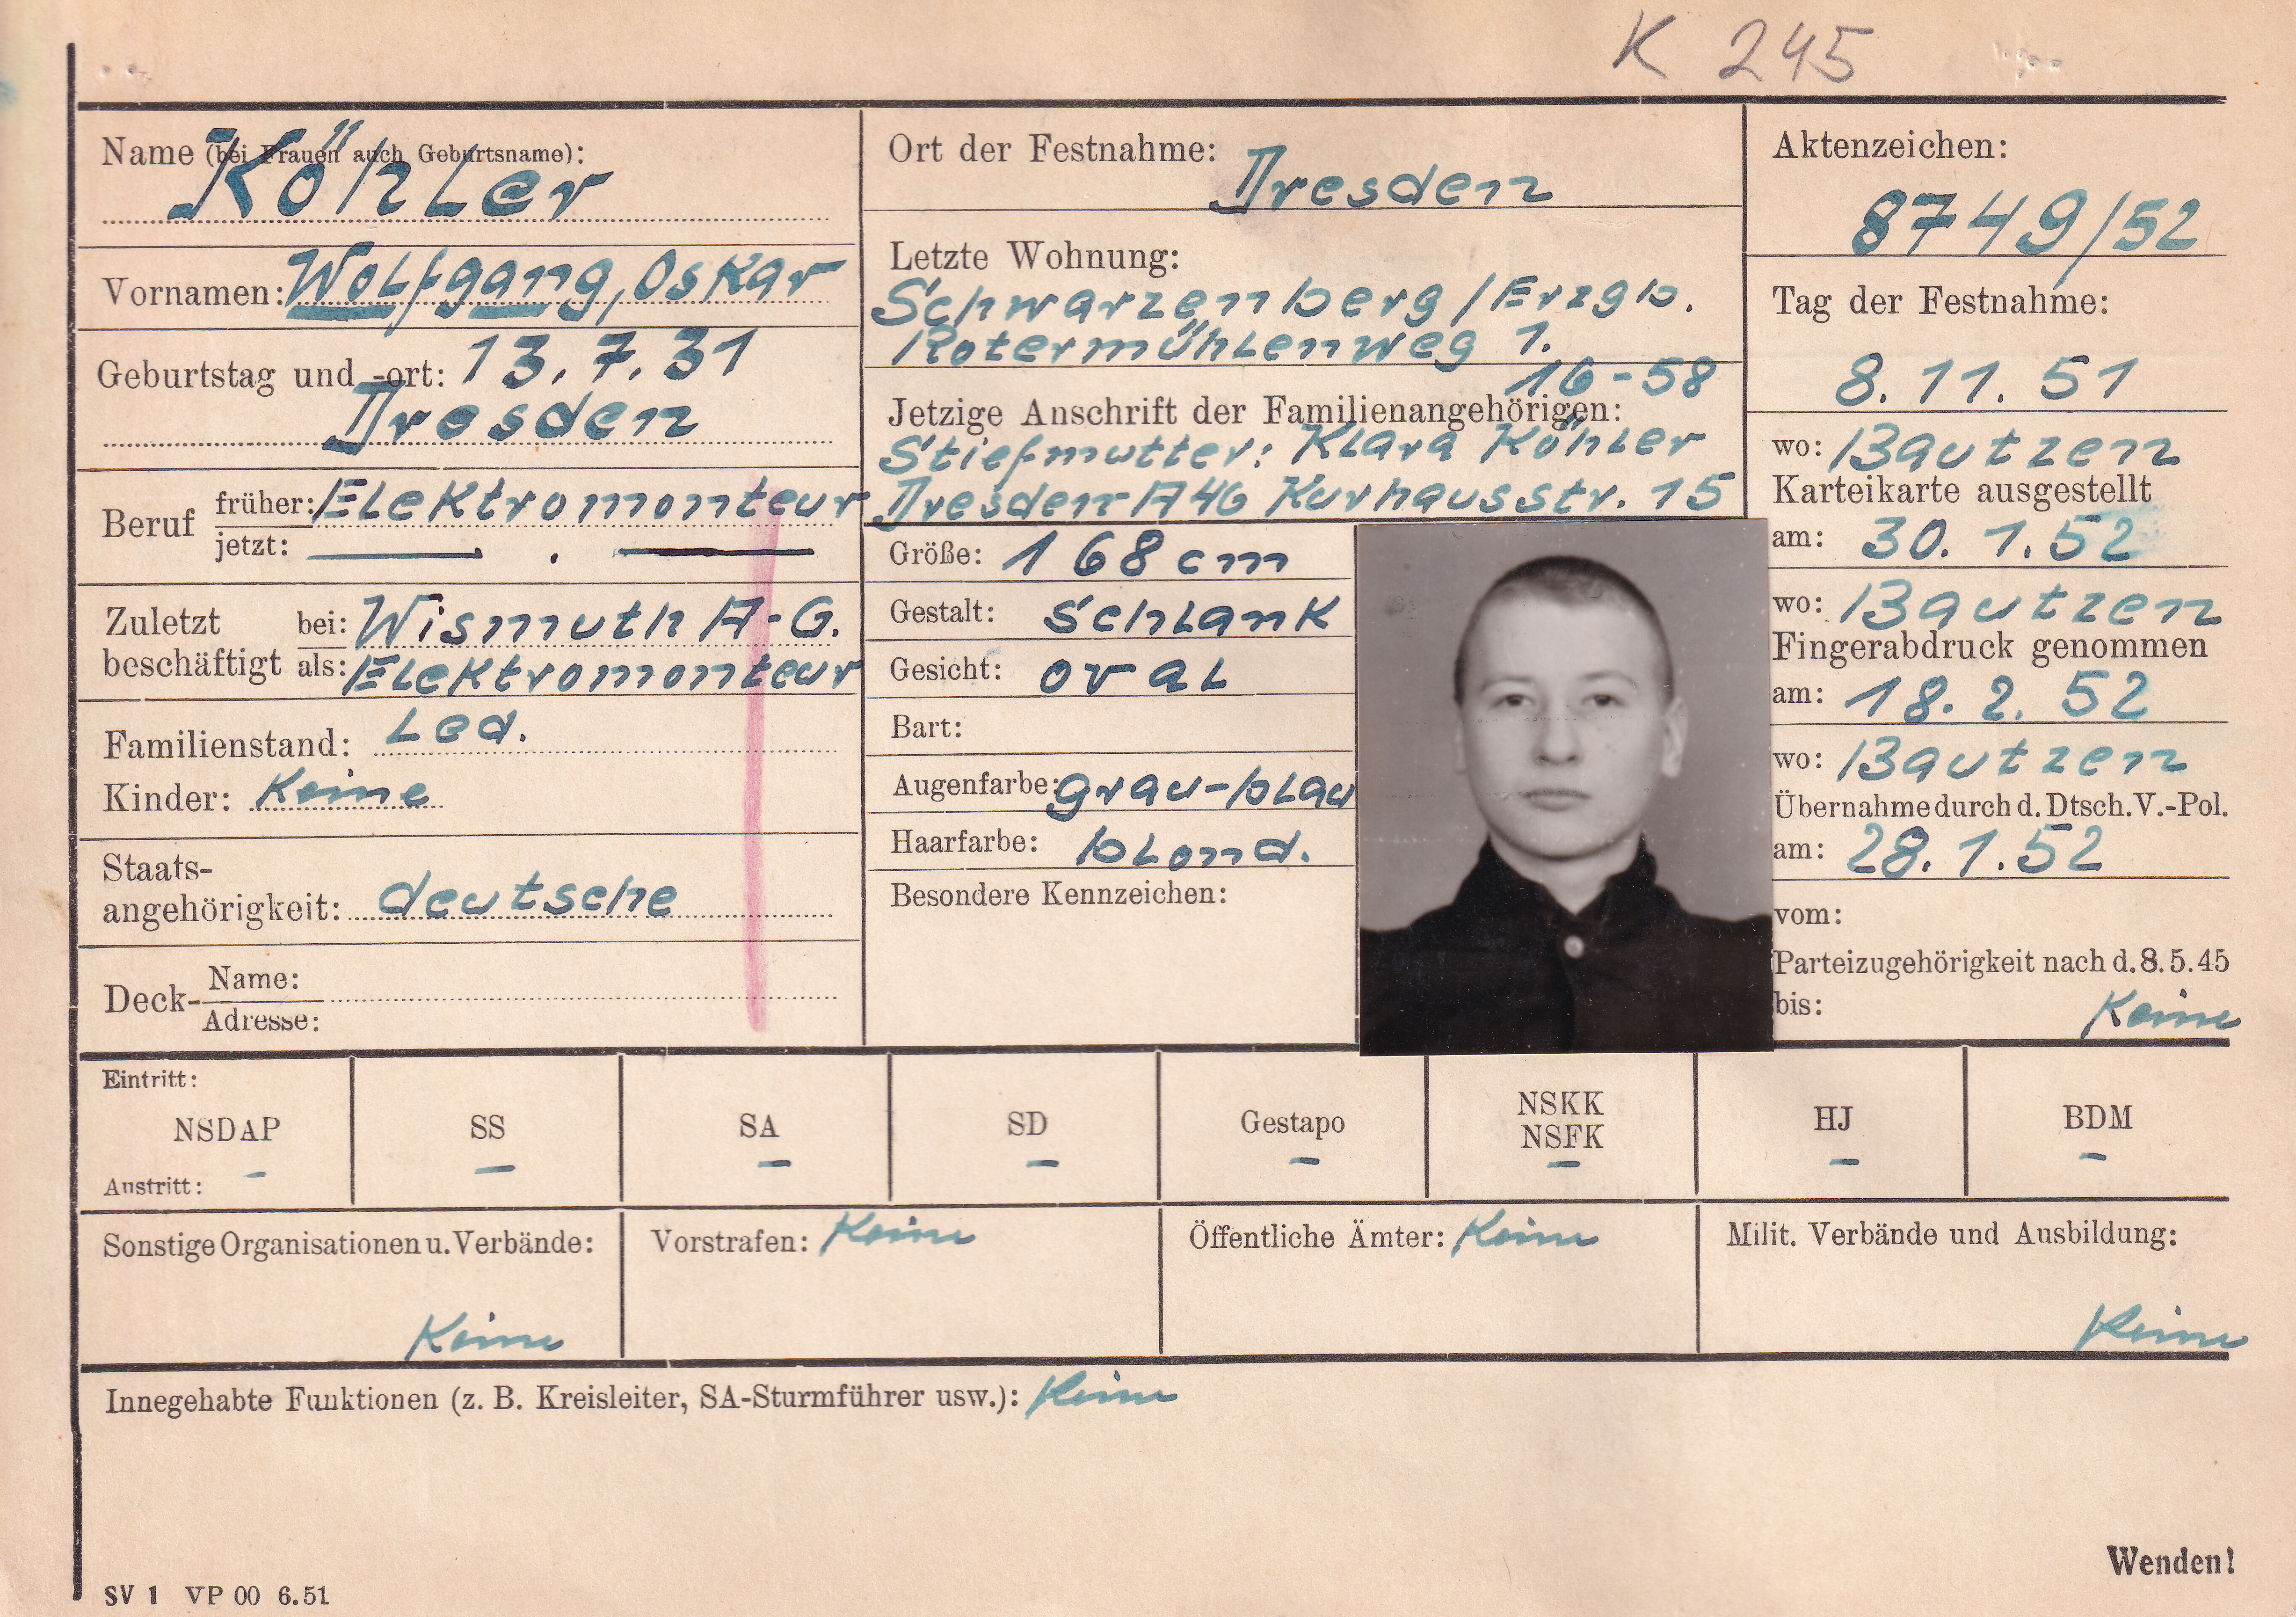 K 245
Name (bei Frauen auch Geburtsname):
Köhler
Vornamen: Wolfgang, Oskar
Geburtstag und -ort: 13. 7. 31
Dresden
Beruf früher: Elektromonteur
jetzt: — . —
Zuletzt beschäftigt bei: Wismuth A-G.
als: Elektromonteur
Familienstand: Led.
Kinder: Keine
Staats-
angehörigkeit: deutsche
Deck- Name:
Adresse:
Ort der Festnahme:
Dresden
Letzte Wohnung:
Schwarzenberg/Erzgb.
Rotermühlenweg 1.
16-58
Jetzige Anschrift der Familienangehörigen:
Stiefmutter: Klara Köhler
Dresden-A46 Kurhausstr. 15
Größe: 168 cm
Gestalt: Schlank
Gesicht: oval
Bart:
Augenfarbe: grau-blau
Haarfarbe: blond.
Besondere Kennzeichen:
Aktenzeichen:
8749/52
Tag der Festnahme:
8. 11. 51
wo: Bautzen
Karteikarte ausgestellt
am: 30. 1. 52
wo: Bautzen
Fingerabdruck genommen
am: 18. 2. 52
wo: Bautzen
Übernahme durch d. Dtsch. V.-Pol.
am: 28. 1. 52
vom:
Parteizugehörigkeit nach d. 8. 5. 45
bis: Keine
Eintritt:
NSDAP SS SA SD Gestapo NSKK NSFK HJ BDM
– – – – – – – –
Austritt:
Sonstige Organisationen u. Verbände:
Keine
Vorstrafen: Keine
Öffentliche Ämter: Keine
Milit. Verbände und Ausbildung:
Keine
Innegehabte Funktionen (z. B. Kreisleiter, SA-Sturmführer usw.): Keine
Wenden!
SV 1 VP 00 6.51